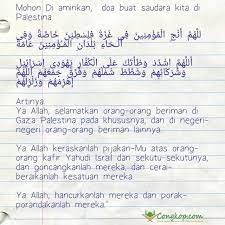 Mohon Di aminkan, doa buat saudara kita di
Palestina
اللَّهُمَّ أَنْجِ الْمُؤْمِنِيْنَ فِى غَزَّةَ فِلِسْطِيْنَ خَاصَّةً وَفِي
بُلْدَانِ الْمُؤْمِنِيْنَ عَامَّةً
اللَّهُمَّ اشْدُدْ وَطْأَتَكَ عَلَى الْكُفَّارِ يَهُوْدِى إِسْرَائِيْلَ
وَشُرَكَائِهِمْ وَشَتِّتْ شَمْلَهُمْ وَفَرِّقْ جَمْعَهُمْ اللَّهُمَّ
اهْزِمْهُمْ وَزَلْزِلْهُمْ
Artinya
Ya Allah, selamatkan orang-orang beriman di
Gaza Palestina pada khususnya, dan di negeri-
negeri orang-orang beriman lainnya.
Ya Allah keraskanlah pijakan-Mu atas orang-
orang kafir Yahudi Israil dan sekutu-sekutunya,
dan goncangkanlah mereka, dan cerai-
beraikanlah kesatuan mereka
Ya Allah, hancurkanlah mereka dan porak-
porandakanlah mereka."
Congkop.com